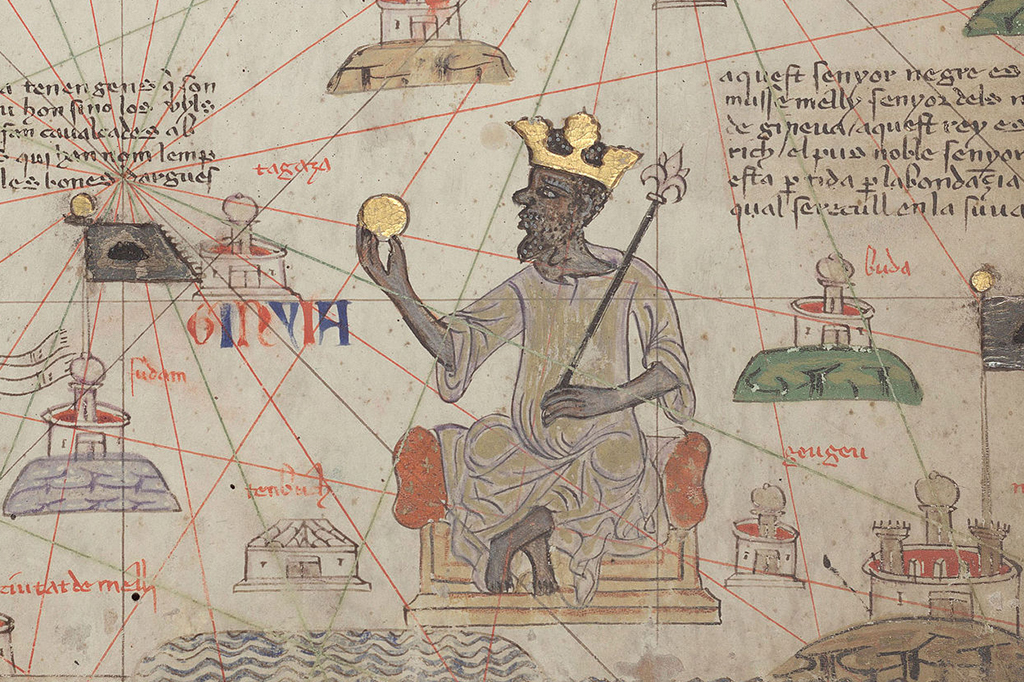 a tenen gens q̃ son
u hon sino los uyls
fan caualcades ab
s qui han nom lemp
les bones dargues
tagaza
aquest senyor negre es
musse melly senyor dels n
de gineua / aquest rey es
rich / el pus noble senyor
esta p̱tida p̱ labondaçia
qual se recull en la suua
buda
GINYIA
sudam
geugeu
tenbuch
ciutat de melly